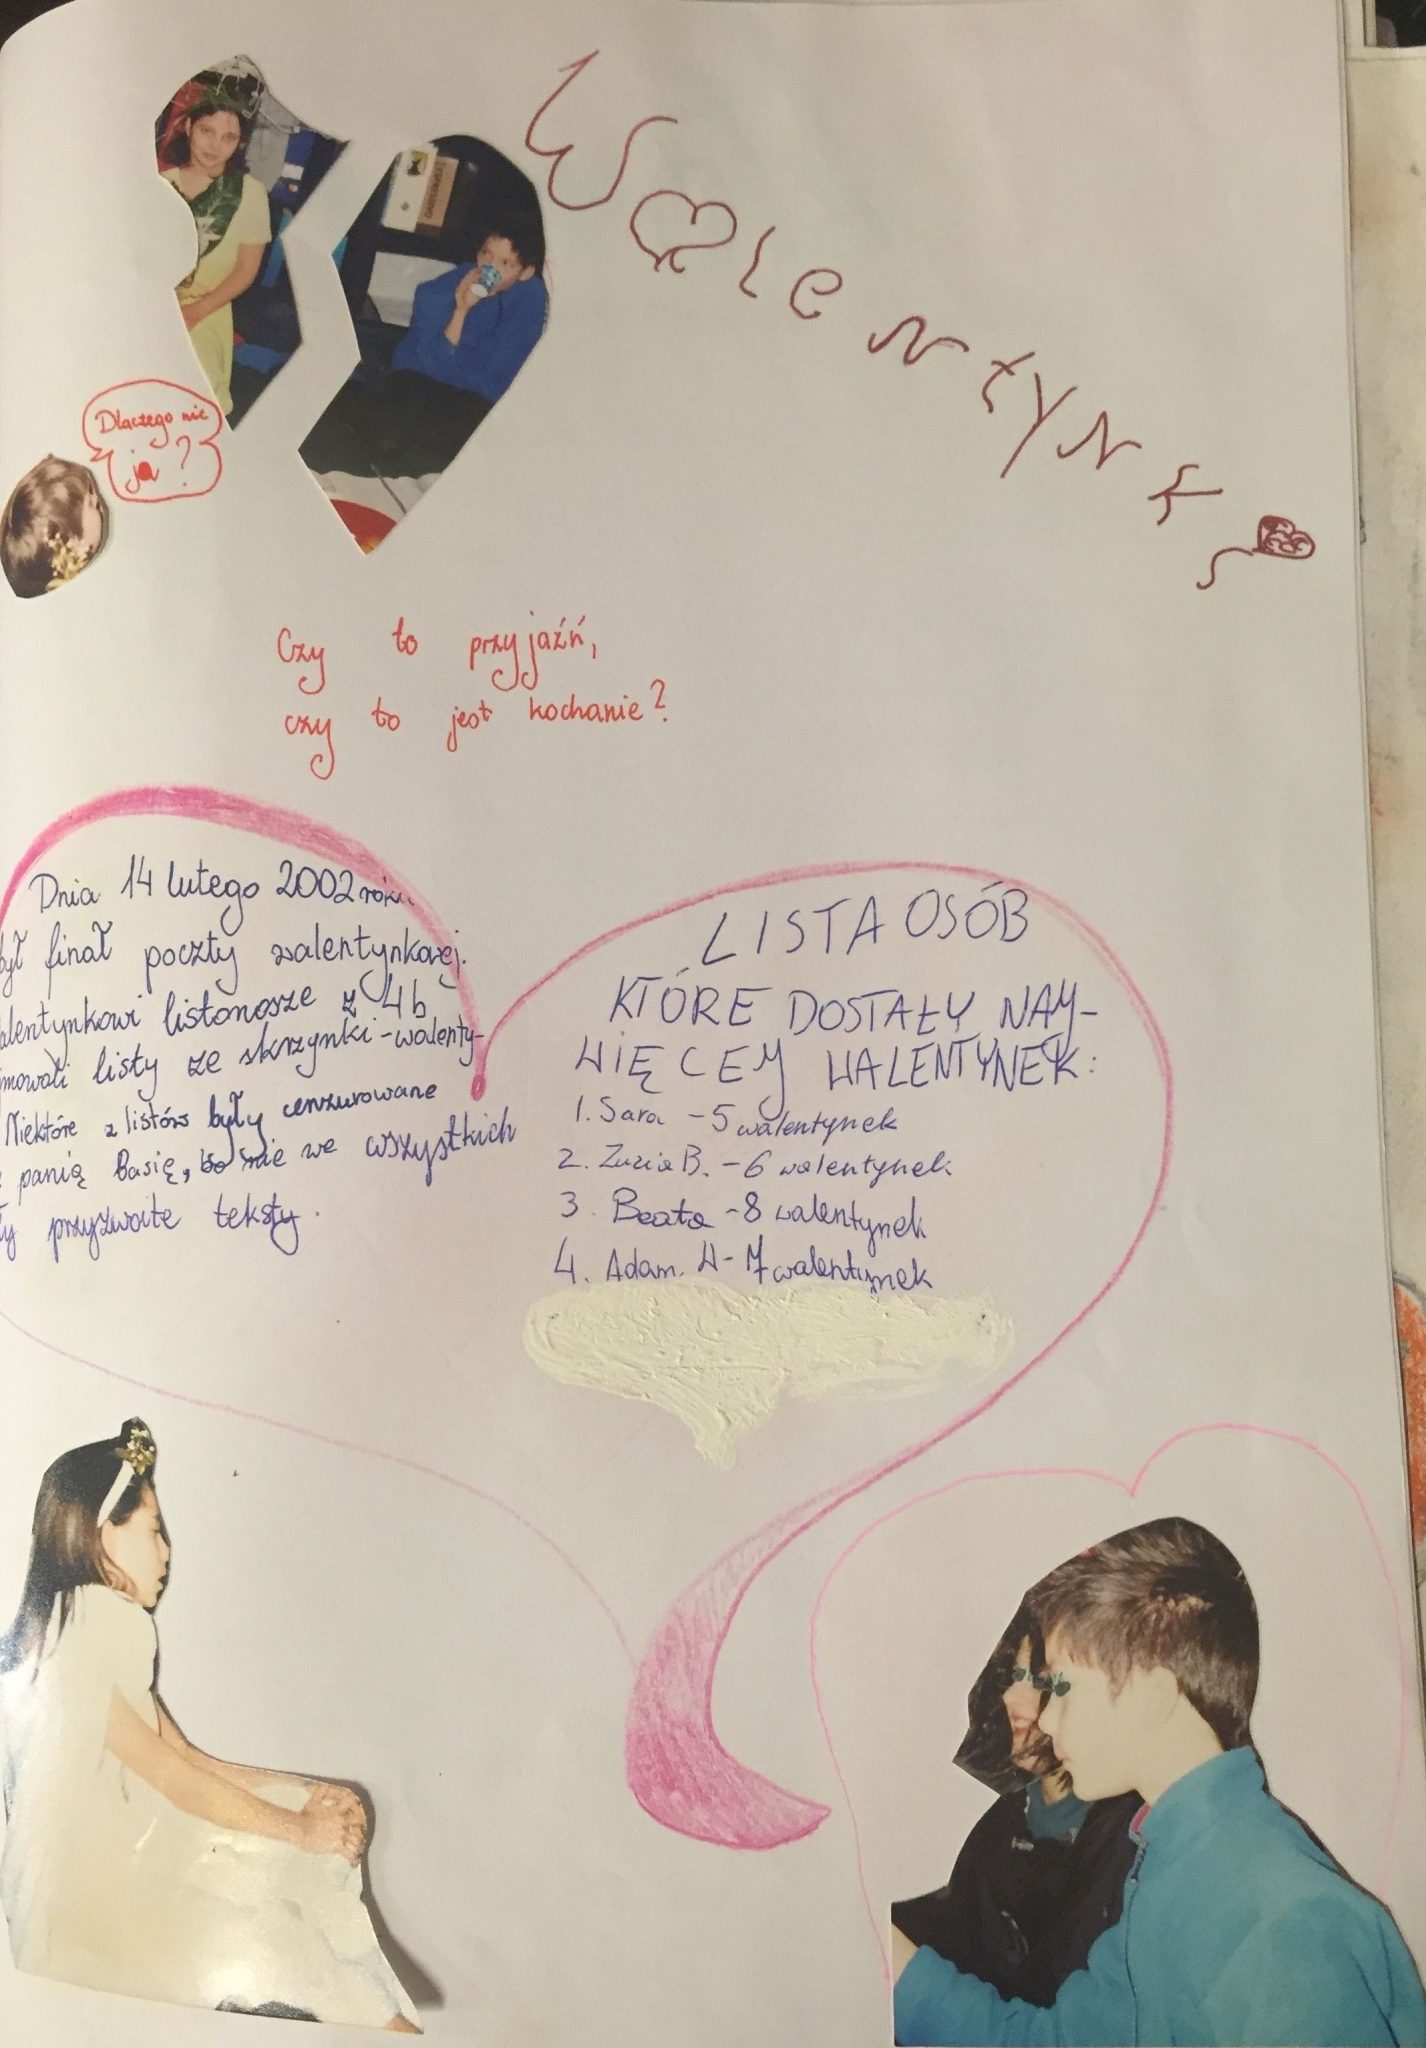 Walentynki
Dlaczego nie
ja?
Czy to przyjaźń,
czy to jest kochanie?
Dnia 14 lutego 2002 roku
był finał poczty walentynkowej.
alentynkowi listonosze z 4b
mowali listy ze skrzynki-walenty-
Niektóre z listów były cenzurowane
panią Basię, bo nie we wszystkich
ły przyzwoite teksty.
LISTA OSÓB
KTÓRE DOSTAŁY NAJ-
WIĘCEJ WALENTYNEK:
1. Sara - 5 walentynek
2. Zuzia B. - 6 walentynek
3. Beata - 8 walentynek
4. Adam. W - 17 walentynek